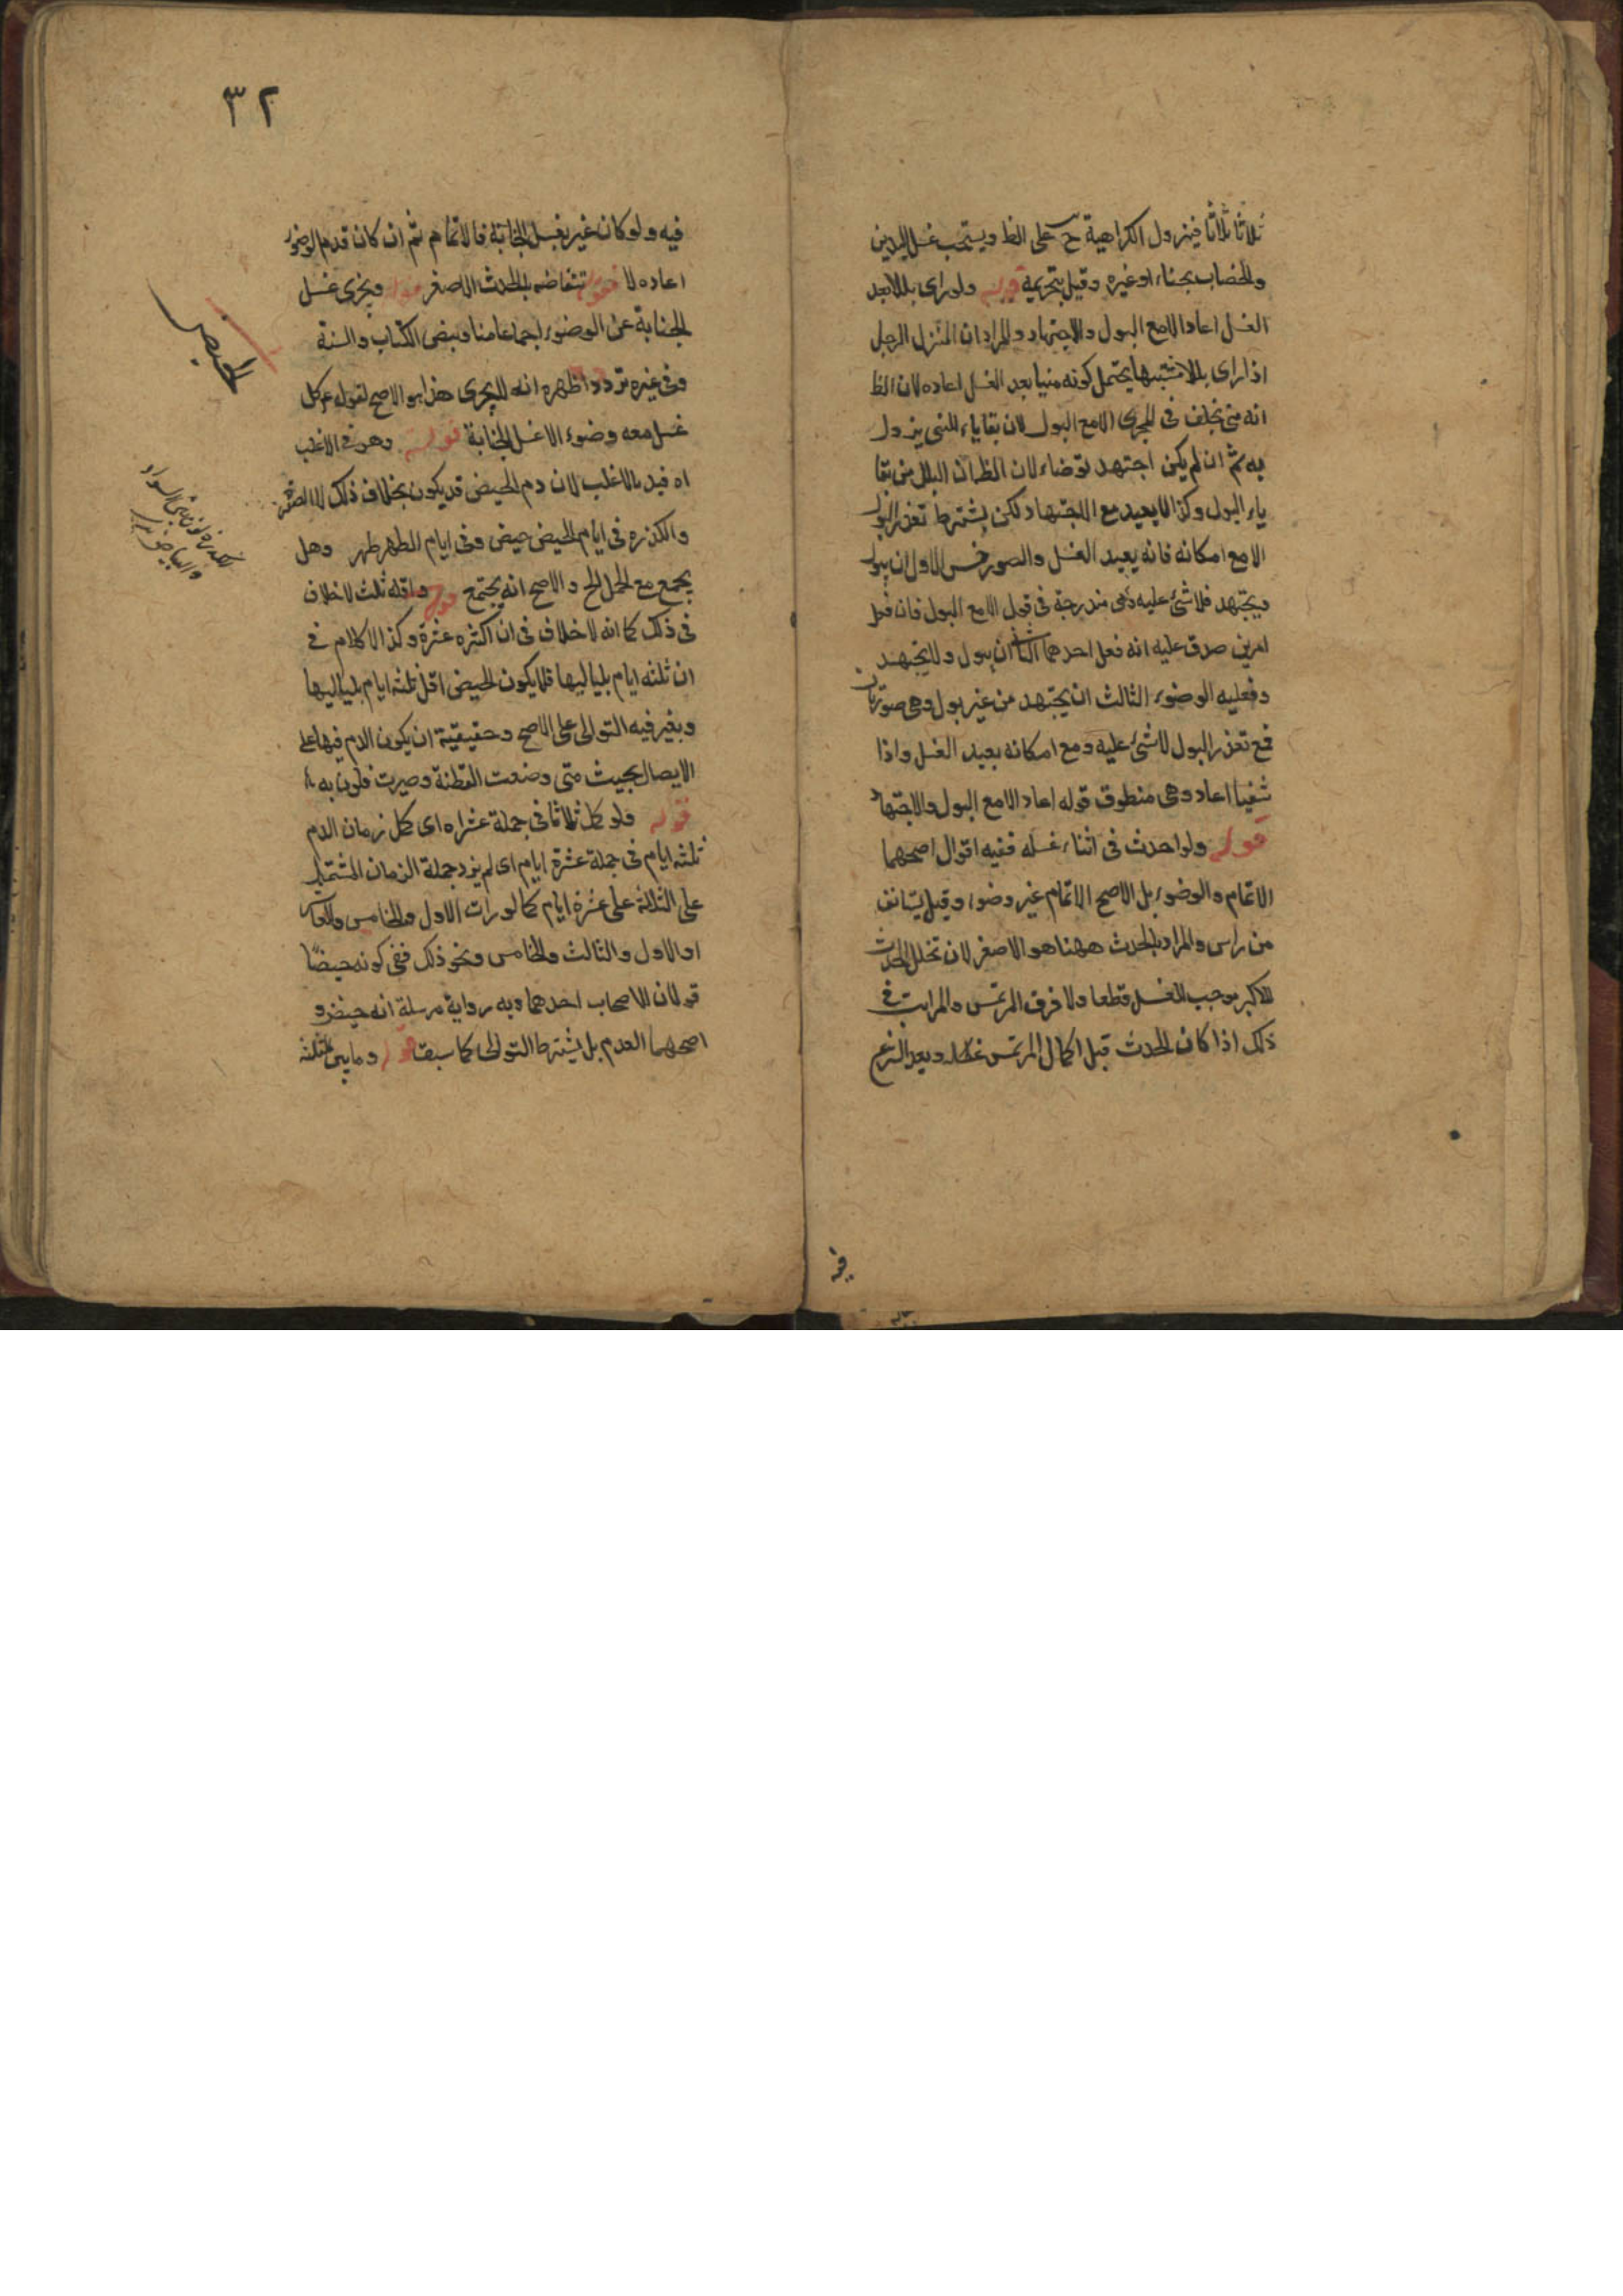 ثلاثا ثلاثا فيزول الكراهية ح على الظ ويستحب غسل اليدين
والخضاب بحناء او غيره وقيل بتحريمه قوله ولو راى بللا بعد
الغسل اعاد الا مع البول والاجتهاد والمراد ان المنزل الرجل
اذا راى بللا مشتبها يحتمل كونه منيا بعد الغسل اعاده لان الظ
انه مني تخلف في المجرى الا مع البول لان بقاياء المني يزول
به ثم ان لم يكن اجتهد توضاء لان الظ ان البلل من بقا
ياء البول وكذا لا يعيد مع الاجتهاد لكن يشترط تعذر البول
الا مع امكانه فانه يعيد الغسل والصور خمس الاول ان يبول
ويجتهد فلا شئ عليه وهي مندرجة في قوله الا مع البول فان فعل
امرين صدق عليه انه فعل احدهما الثاني ان يبول ولا يجتهد
وفعليه الوضوء الثالث ان يجتهد من غير بول وهي صورتان
فمع تعذر البول لا شئ عليه ومع امكانه يعيد الغسل واذا
انتفيا اعاد وهي منطوق قوله اعاد الا مع البول والاجتهاد
قوله ولو احدث في اثناء غسله ففيه اقوال اصحهما
الاتمام والوضوء بل الاصح الاتمام غير وضوء وقيل يستانف
من راس والمراد بالحدث ههنا هو الاصغر لان تخلل الحدث
الاكبر موجب للغسل قطعا ولا فرق المرتمس والمرتب في
ذلك اذا كان الحدث قبل اكمال المرتمس غسله وبعد الشرع
فيه
٣٢
فيه ولو كان غير غسل الجنابة فالاتمام ثم ان كان قدم الوضوء
اعاده لا بالحدث الاصغر قوله ويجزى غسل
الجنابة عن الوضوء اجماعا منا وبنص الكتاب والسنة
وفى غيره تردد اظهره انه لا يجزى هذا هو الاصح لقوله ع كل
غسل معه وضوء الا غسل الجنابة قوله وهو في الاغلب
اه قيد بالاغلب لان دم الحيض قد يكون بخلاف ذلك لان الصفرة
والكدرة في ايام الحيض حيض وفي ايام الطهر طهر وهل
يجمع مع الحمل الخ والاصح انه يجتمع قوله واقله ثلث لا خلاف
في ذلك كما انه لا خلاف في ان اكثره عشرة وكذا لا كلام في
ان ثلثه ايام بلياليها فلا يكون الحيض اقل ثلثه ايام بلياليها
ويعتبر فيه التوالى على الاصح وحقيقية ان يكون الدم فيها على
الايصال بحيث متى وضعت القطنة وصبرت تلوث به
قوله فلو كمل ثلاثا في جملة عشراه اى كمل زمان الدم
ثلثه ايام في جملة عشرة ايام اى لم يزد جملة الزمان المشتمل
على الثلاثة على عشرة ايام كما لو رات الاول والخامس والعاشر
او الاول والثالث والخامس ونحو ذلك ففي كونه حيضا
قولان للاصحاب احدهما وبه رواية مرسلة انه حيض و
اصحهما العدم بل يشترط التوالى كما سبق قوله وما بين الثلثه
الحيض
الكدرة لون بين السواد
والبياض